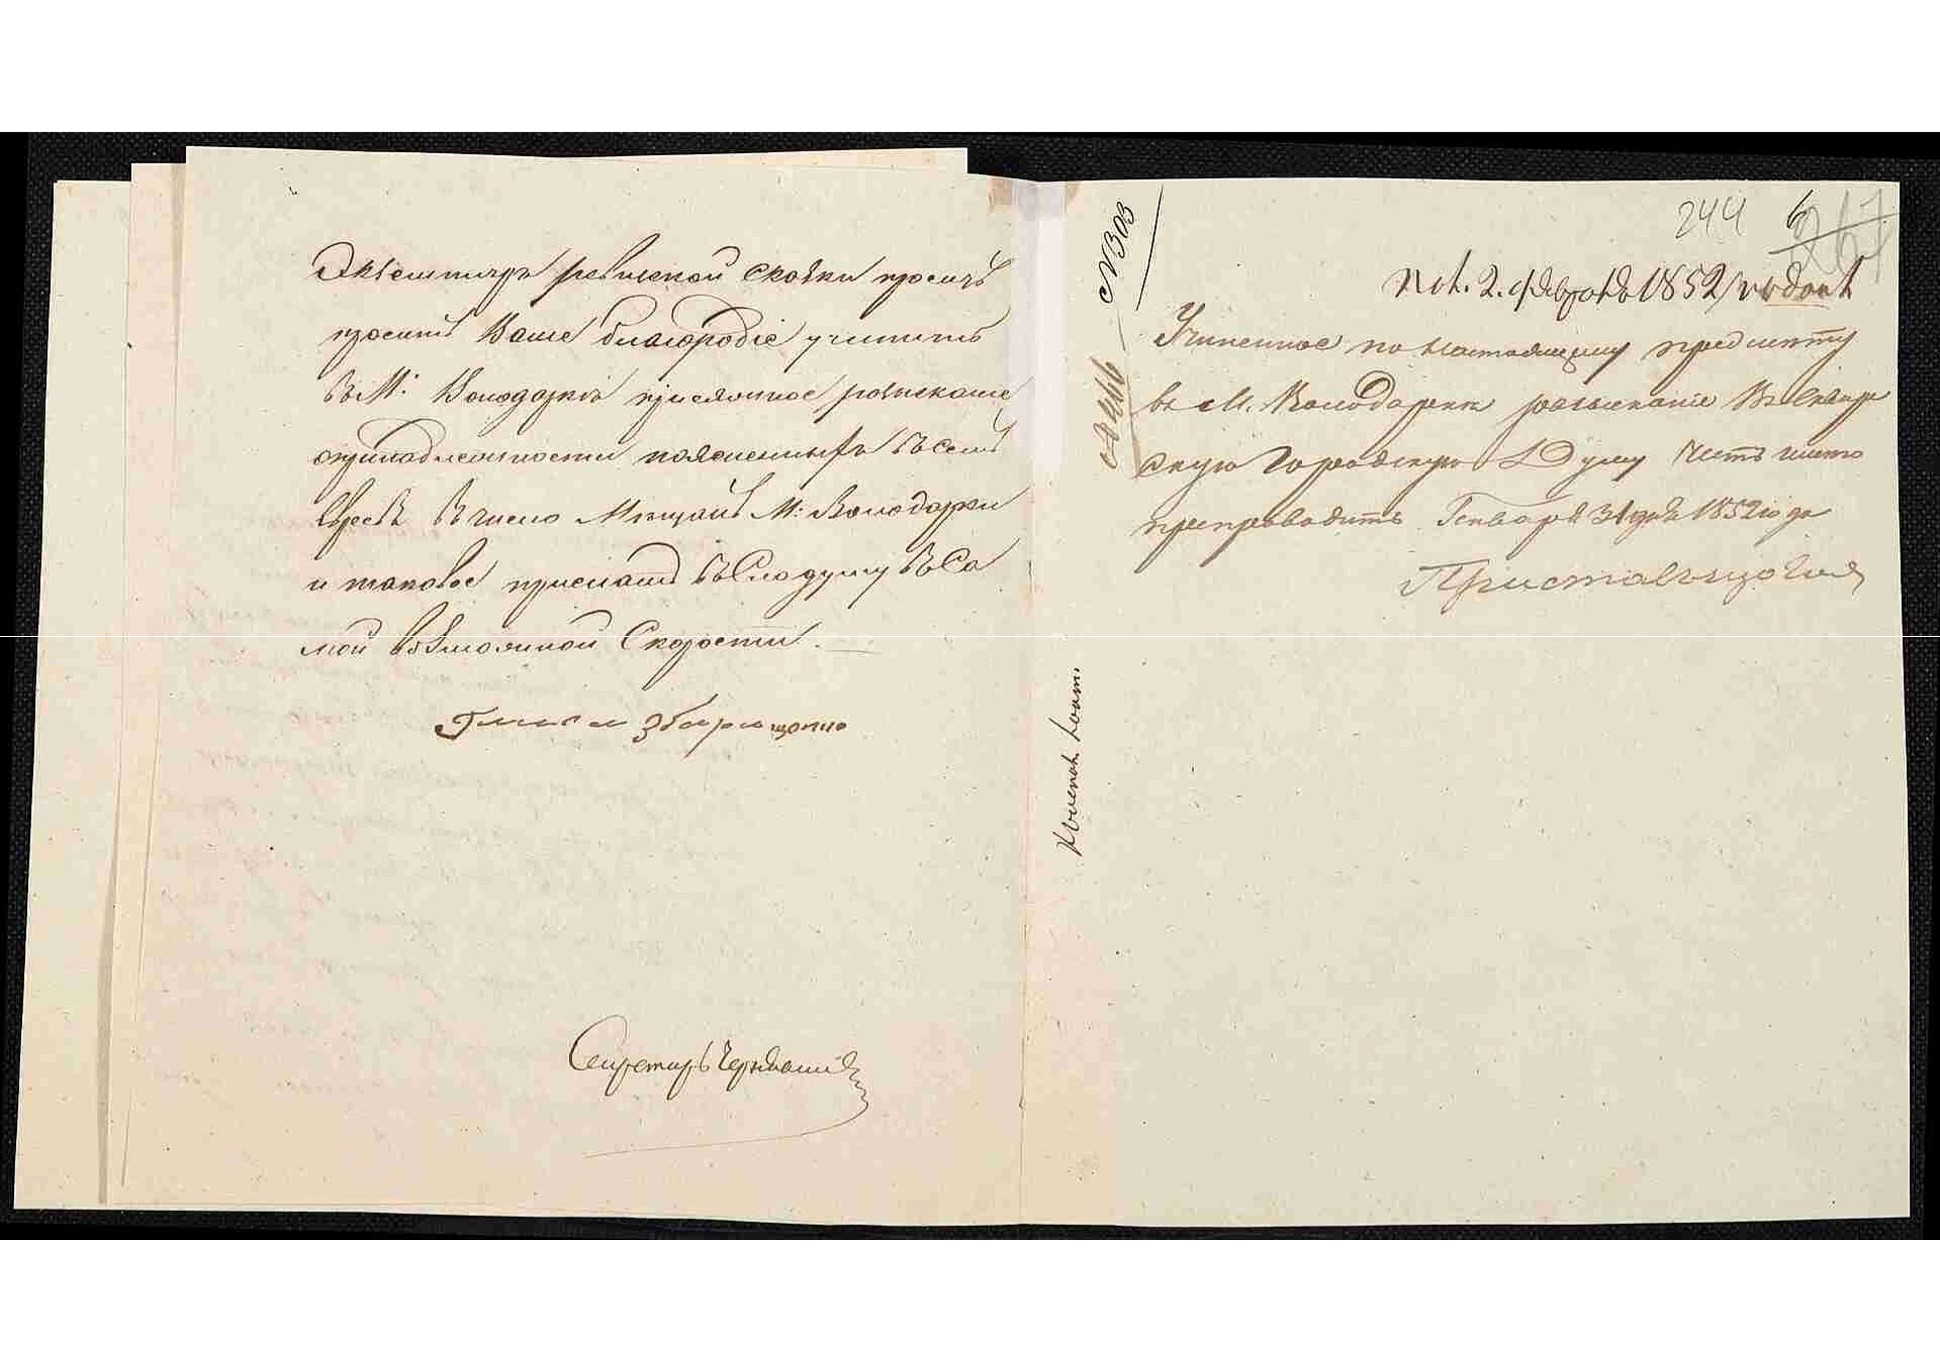 Экземпляръ ревиской скаски проситъ
проситъ Ваше благородіе учинить
въ М: Володарки присяжное розискание
о принадлежности поясненныхъ въ семъ
Евреевъ въ число Мещанъ М: Володарки
и таковое прислать въ Сію думу въ Са
мой возможной Скорости.
Гласн Збарощенко
Секретарь
244
6
№ 303
Пол. 2. февраля 1852 года
Учиненное по настоящему предмету
въ М. Володарки розыскание Въ Сквир
скую Городскую Думу Честь имею
препроводить Генваря 31 дня 1852 года
Пристав